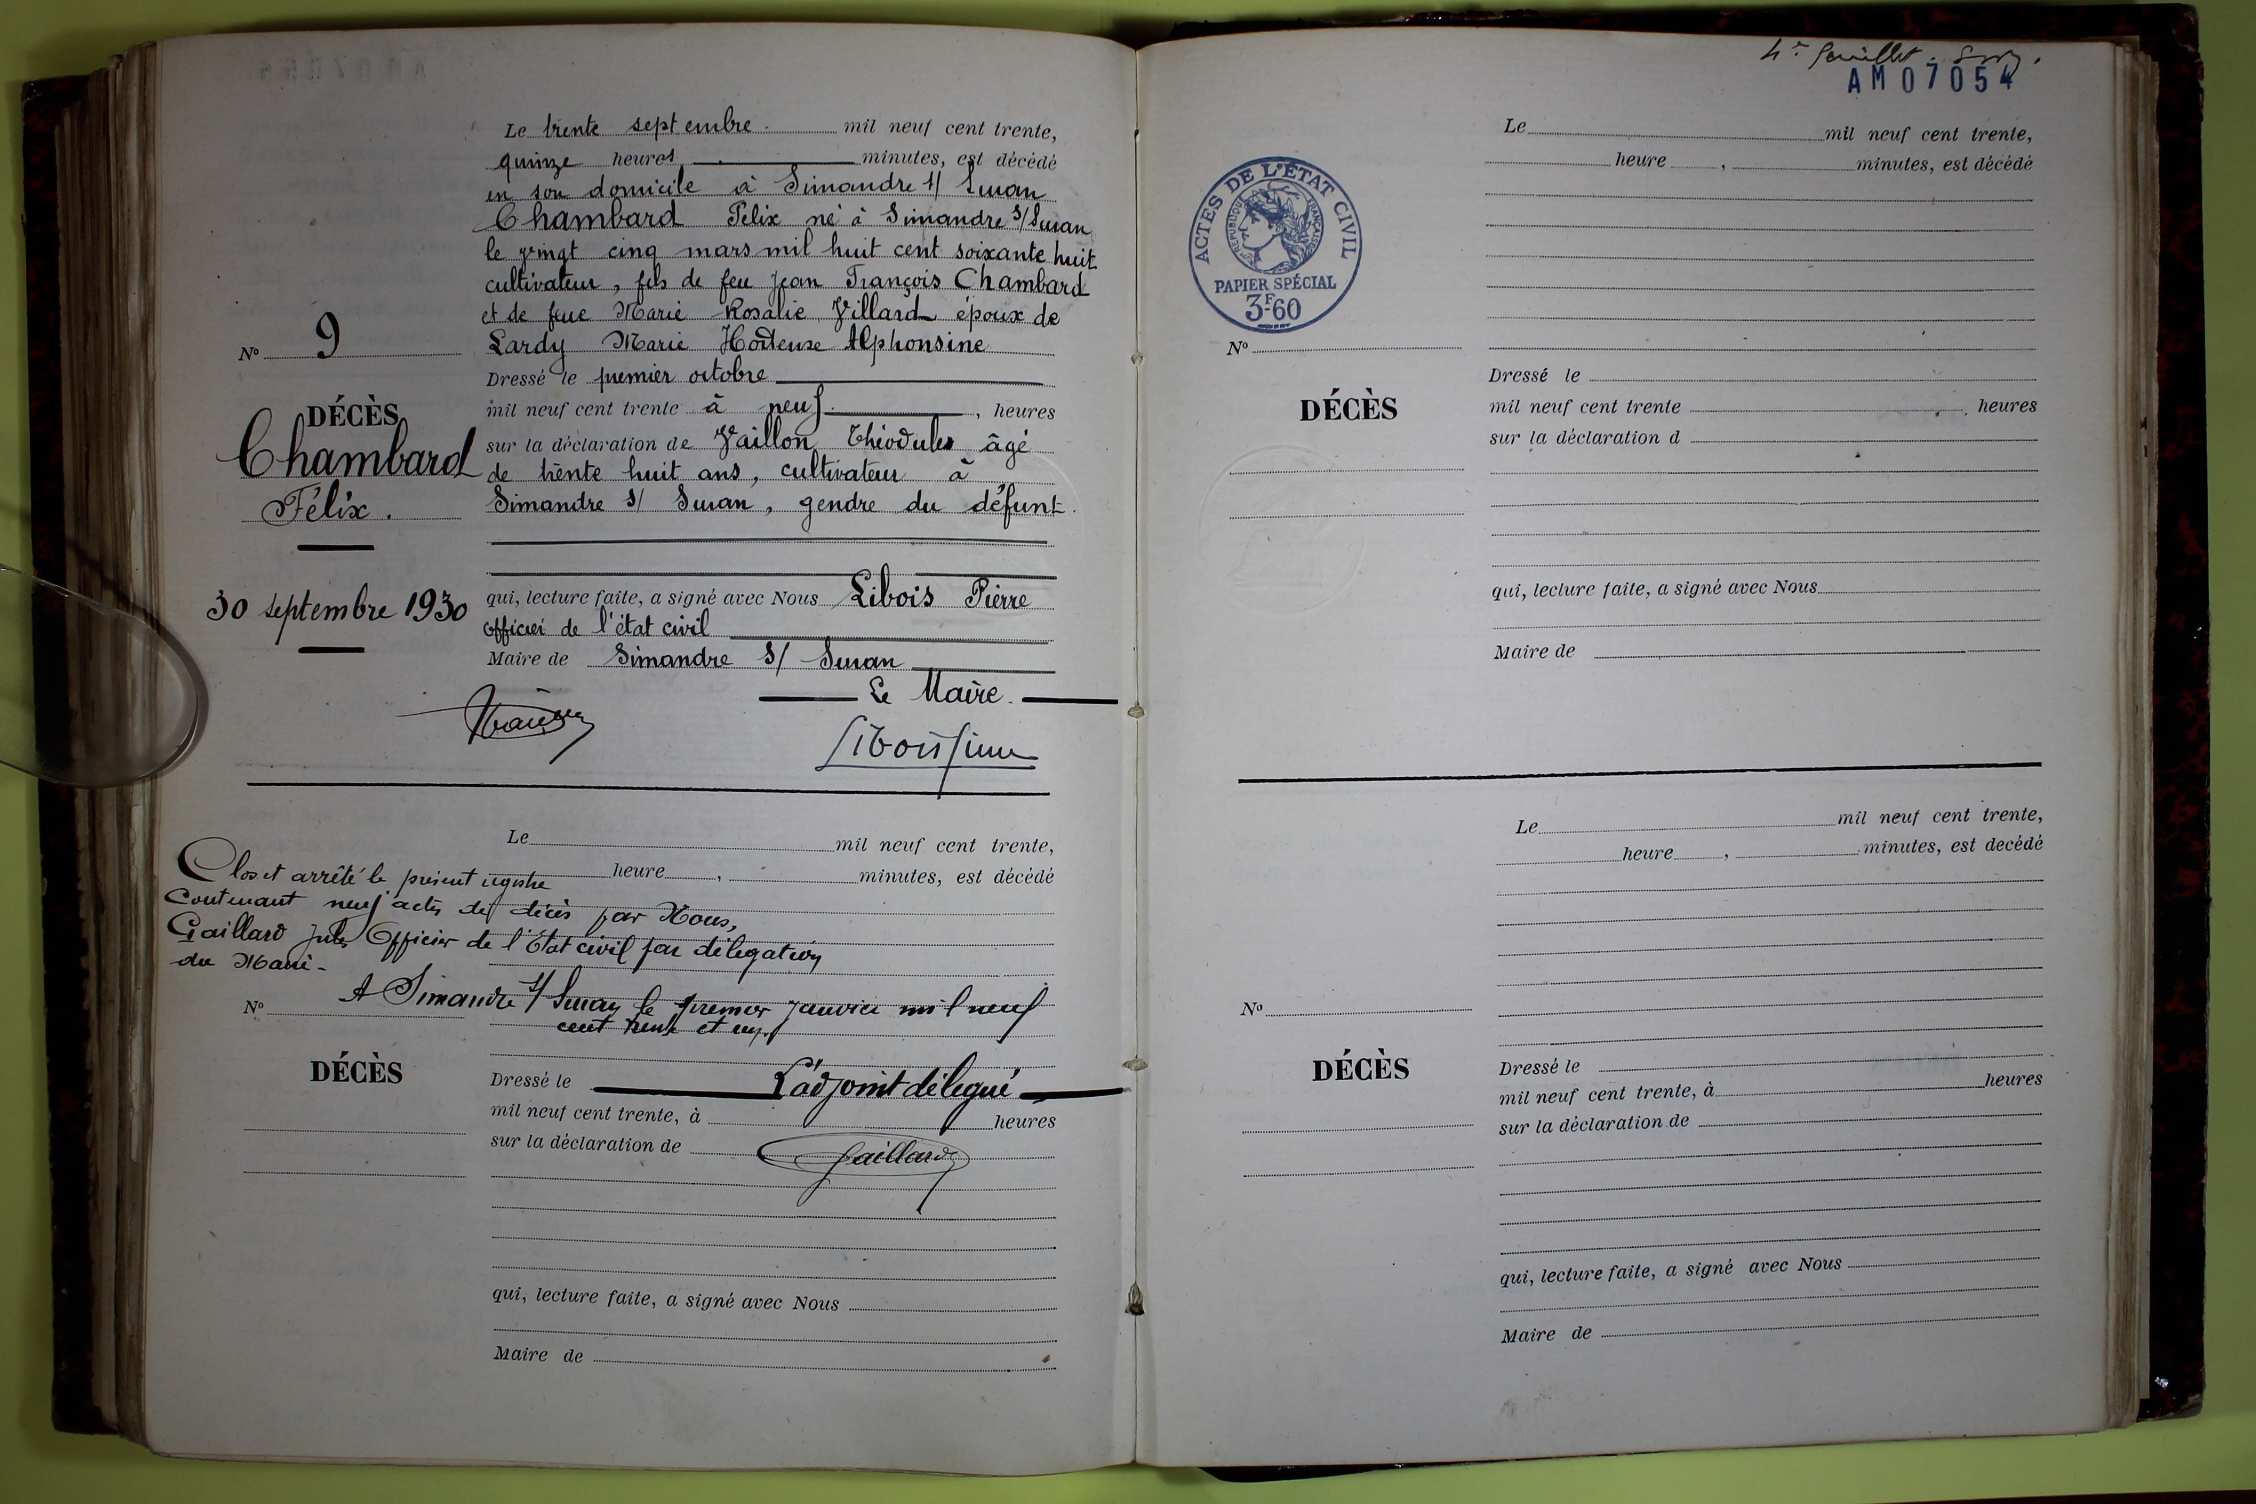 Le trente septembre mil neuf cent trente,
quinze heures minutes, est décédé
en son domicile à Simandre s/ Suran
Chambard Félix né à Simandre s/Suran
le vingt cinq mars mil huit cent soixante huit
cultivateur, fils de feu Jean François Chambard
et de feue Marie Rosalie Villard époux de
Lardy Marie Hortense Alphonsine
Dressé le premier octobre
mil neuf cent trente à neuf, heures
sur la déclaration de Vaillon Théodule âgé
de trente huit ans, cultivateur à
Simandre s/ Suran, gendre du défunt.
qui, lecture faite, a signé avec Nous Libois Pierre
officier de l'état civil
Maire de Simandre s/ Suran
Le Maire.
Libois Pierre
No 9
DÉCÈS
Chambard
Félix.
30 septembre 1930
Le mil neuf cent trente,
heure , minutes, est décédé
Clos et arrêté le présent registre
Contenant neuf actes de décès par Nous,
Gaillard Jules Officier de l'État civil par délégation
du Maire-
A Simandre s/ Suran le premier janvier mil neuf
cent trente et un.
No
DÉCÈS
Dressé le L'adjoint délégué
mil neuf cent trente, à heures
sur la déclaration de
Gaillard
qui, lecture faite, a signé avec Nous
Maire de
4e feuillet.
AM07054
ACTES DE L'ÉTAT CIVIL
RÉPUBLIQUE FRANÇAISE
PAPIER SPÉCIAL
3F60
Le mil neuf cent trente,
heure , minutes, est décédé
No
DÉCÈS
Dressé le
mil neuf cent trente , heures
sur la déclaration d
qui, lecture faite, a signé avec Nous
Maire de
Le mil neuf cent trente,
heure , minutes, est decédé
No
DÉCÈS
Dressé le
mil neuf cent trente, à heures
sur la déclaration de
qui, lecture faite, a signé avec Nous
Maire de